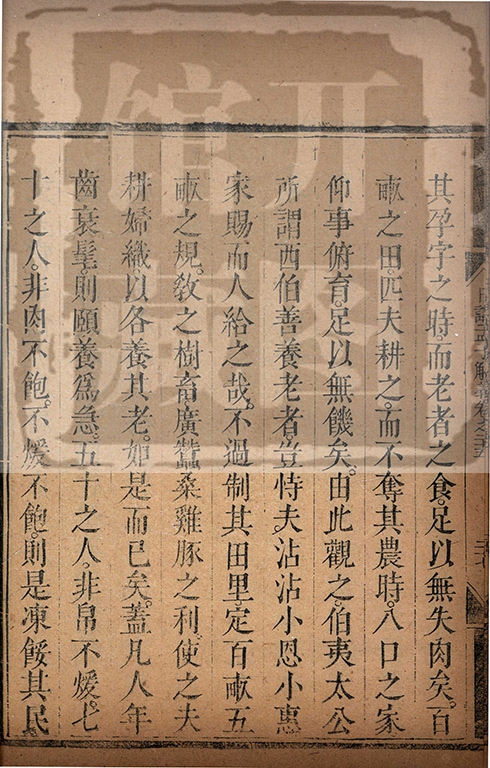 其孕字之時。而老者之食。足以無失肉矣。百
畝之田。匹夫耕之。而不奪其農時。八口之家
仰事俯育。足以無饑矣。由此觀之。伯夷太公
所謂西伯善養老者。豈恃夫沾沾小恩小惠
家賜而人給之哉。不過制其田里定百畝五
畝之規。敎之樹畜。廣蠶桑雞豚之利。使之夫
耕婦織。以各養其老。如是而已矣。蓋凡人年
齒衰髦。則頤養爲急。五十之人。非帛不煖。七
十之人。非肉不飽。不煖不飽。則是凍餒其民